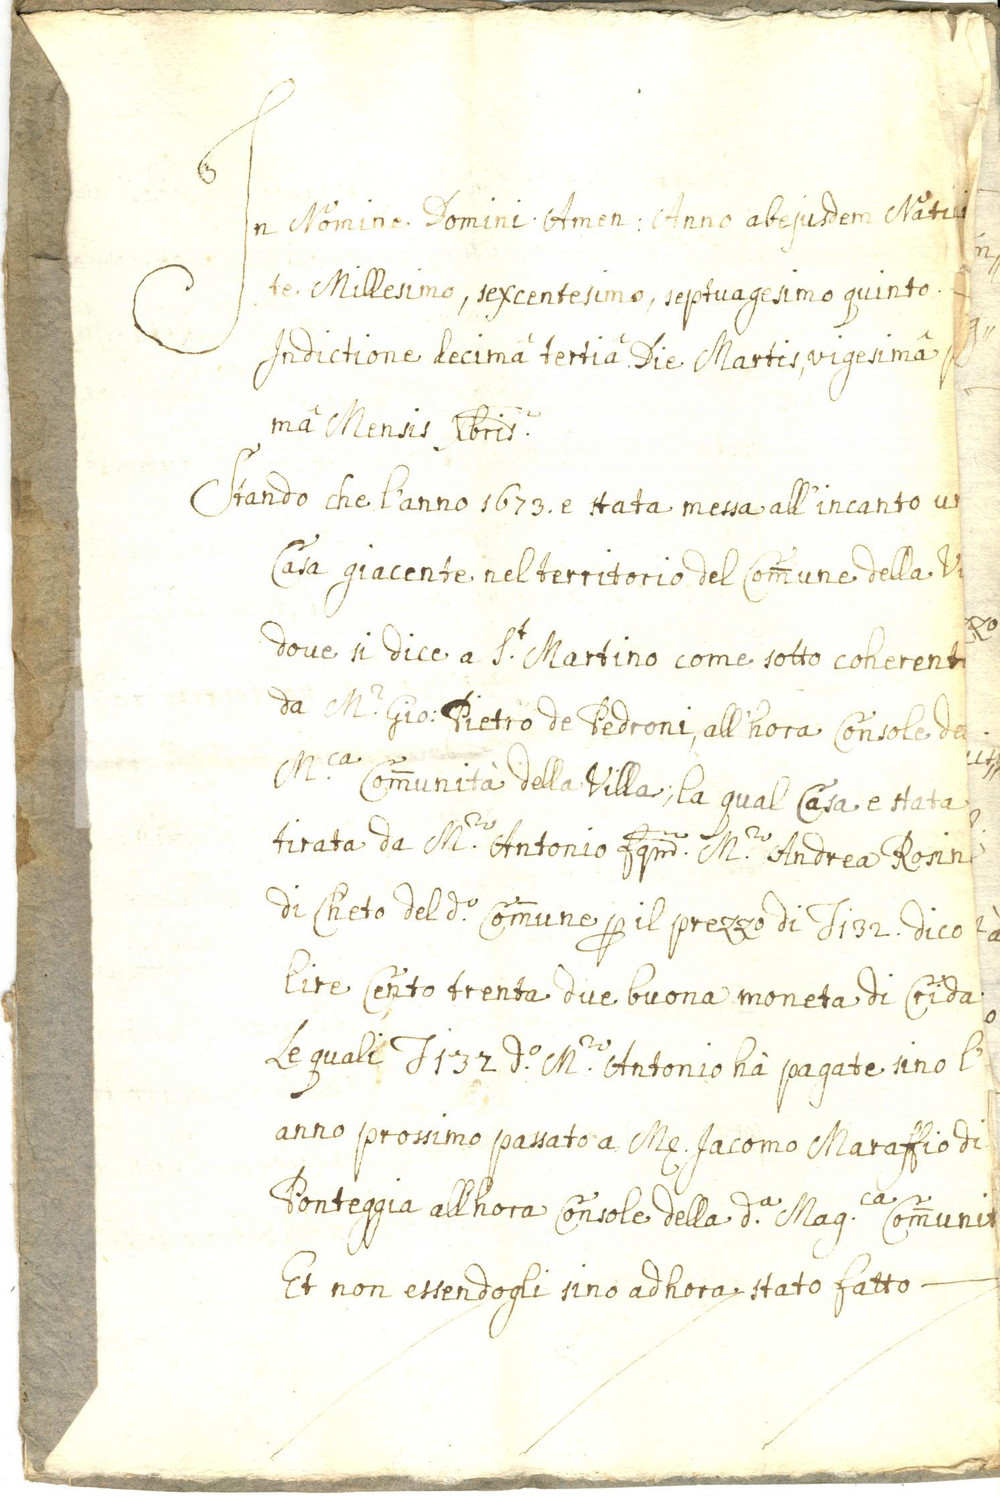 In Nomine Domini Amen: Anno ab ejusdem Nativi
te Millesimo, sexcentesimo, septuagesimo quinto.
Indictione decimâ tertiâ Die Martis, vigesimâ p
mâ Mensis Xbris.
Stando che l'anno 1673. e stata messa all'incanto un
Casa giacente nel territorio del Comune della Vi
dove si dice a S.t Martino come sotto coherent
da M.r Gio: Pietro de Pedroni, all'hora Console de
M.ca Comunità della Villa, la qual Casa e stata
tirata da M.ro Antonio fqm. M.ro Andrea Rosin
di Cheto del d.o Comune p il prezzo di T 132. dico
lire Cento trenta due buona moneta di Crida
Le quali T 132 d.o M.ro Antonio hà pagate sino l'
anno prossimo passato a Mg. Jacomo Maraffio di
Ponteggia all'hora Console della d.a Mag.ca Comunit
Et non essendogli sino adhora stato fatto